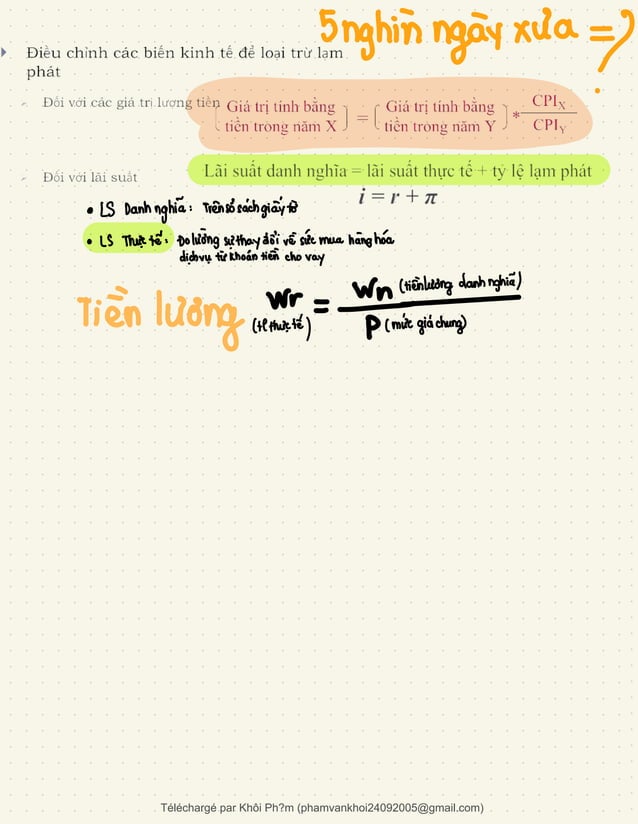 5 nghìn ngày xưa =>?
Điều chỉnh các biến kinh tế để loại trừ lạm
phát
Đối với các giá trị lượng tiền
Giá trị tính bằng tiền trong năm X = Giá trị tính bằng tiền trong năm Y * CPIX / CPIY
Đối với lãi suất
Lãi suất danh nghĩa = lãi suất thực tế + tỷ lệ lạm phát
i = r + π
• LS Danh nghĩa : Trên sổ sách giấy tờ
• LS Thực tế : Đo lường sự thay đổi về sức mua hàng hóa
dịch vụ từ khoản tiền cho vay
Tiền lương Wr (tl thực tế) = Wn (tiền lương danh nghĩa) / P (mức giá chung)
Téléchargé par Khôi Ph?m (phamvankhoi24092005@gmail.com)